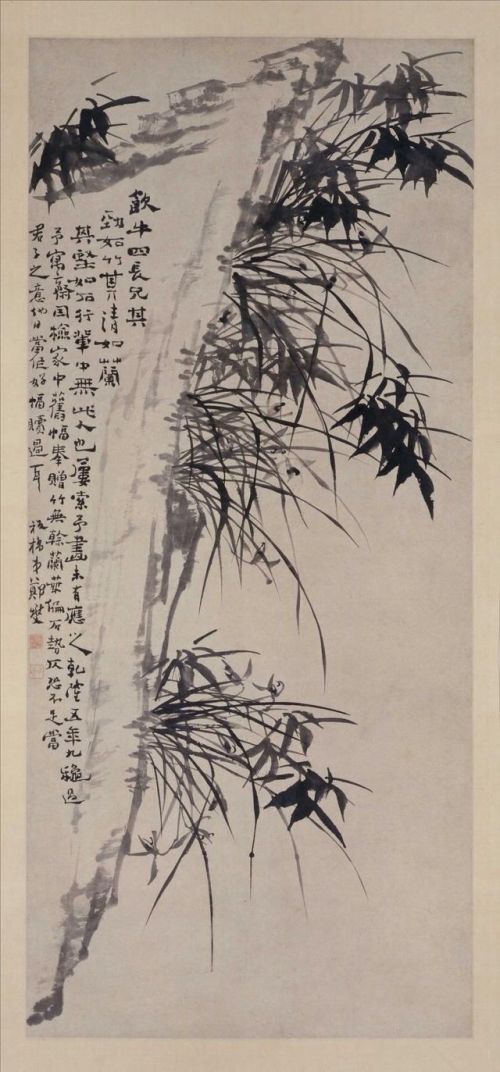 牛四長兄其
勁如竹其清如蘭
其堅如石行輩中無此人也屢索予畫未有應之乾隆五年九穐過
予寓齋因檢家中舊幅奉贈竹無榦蘭葉偏石勢仄恐不足當
君子之意他日當作好幅贖過耳 板橋弟鄭燮